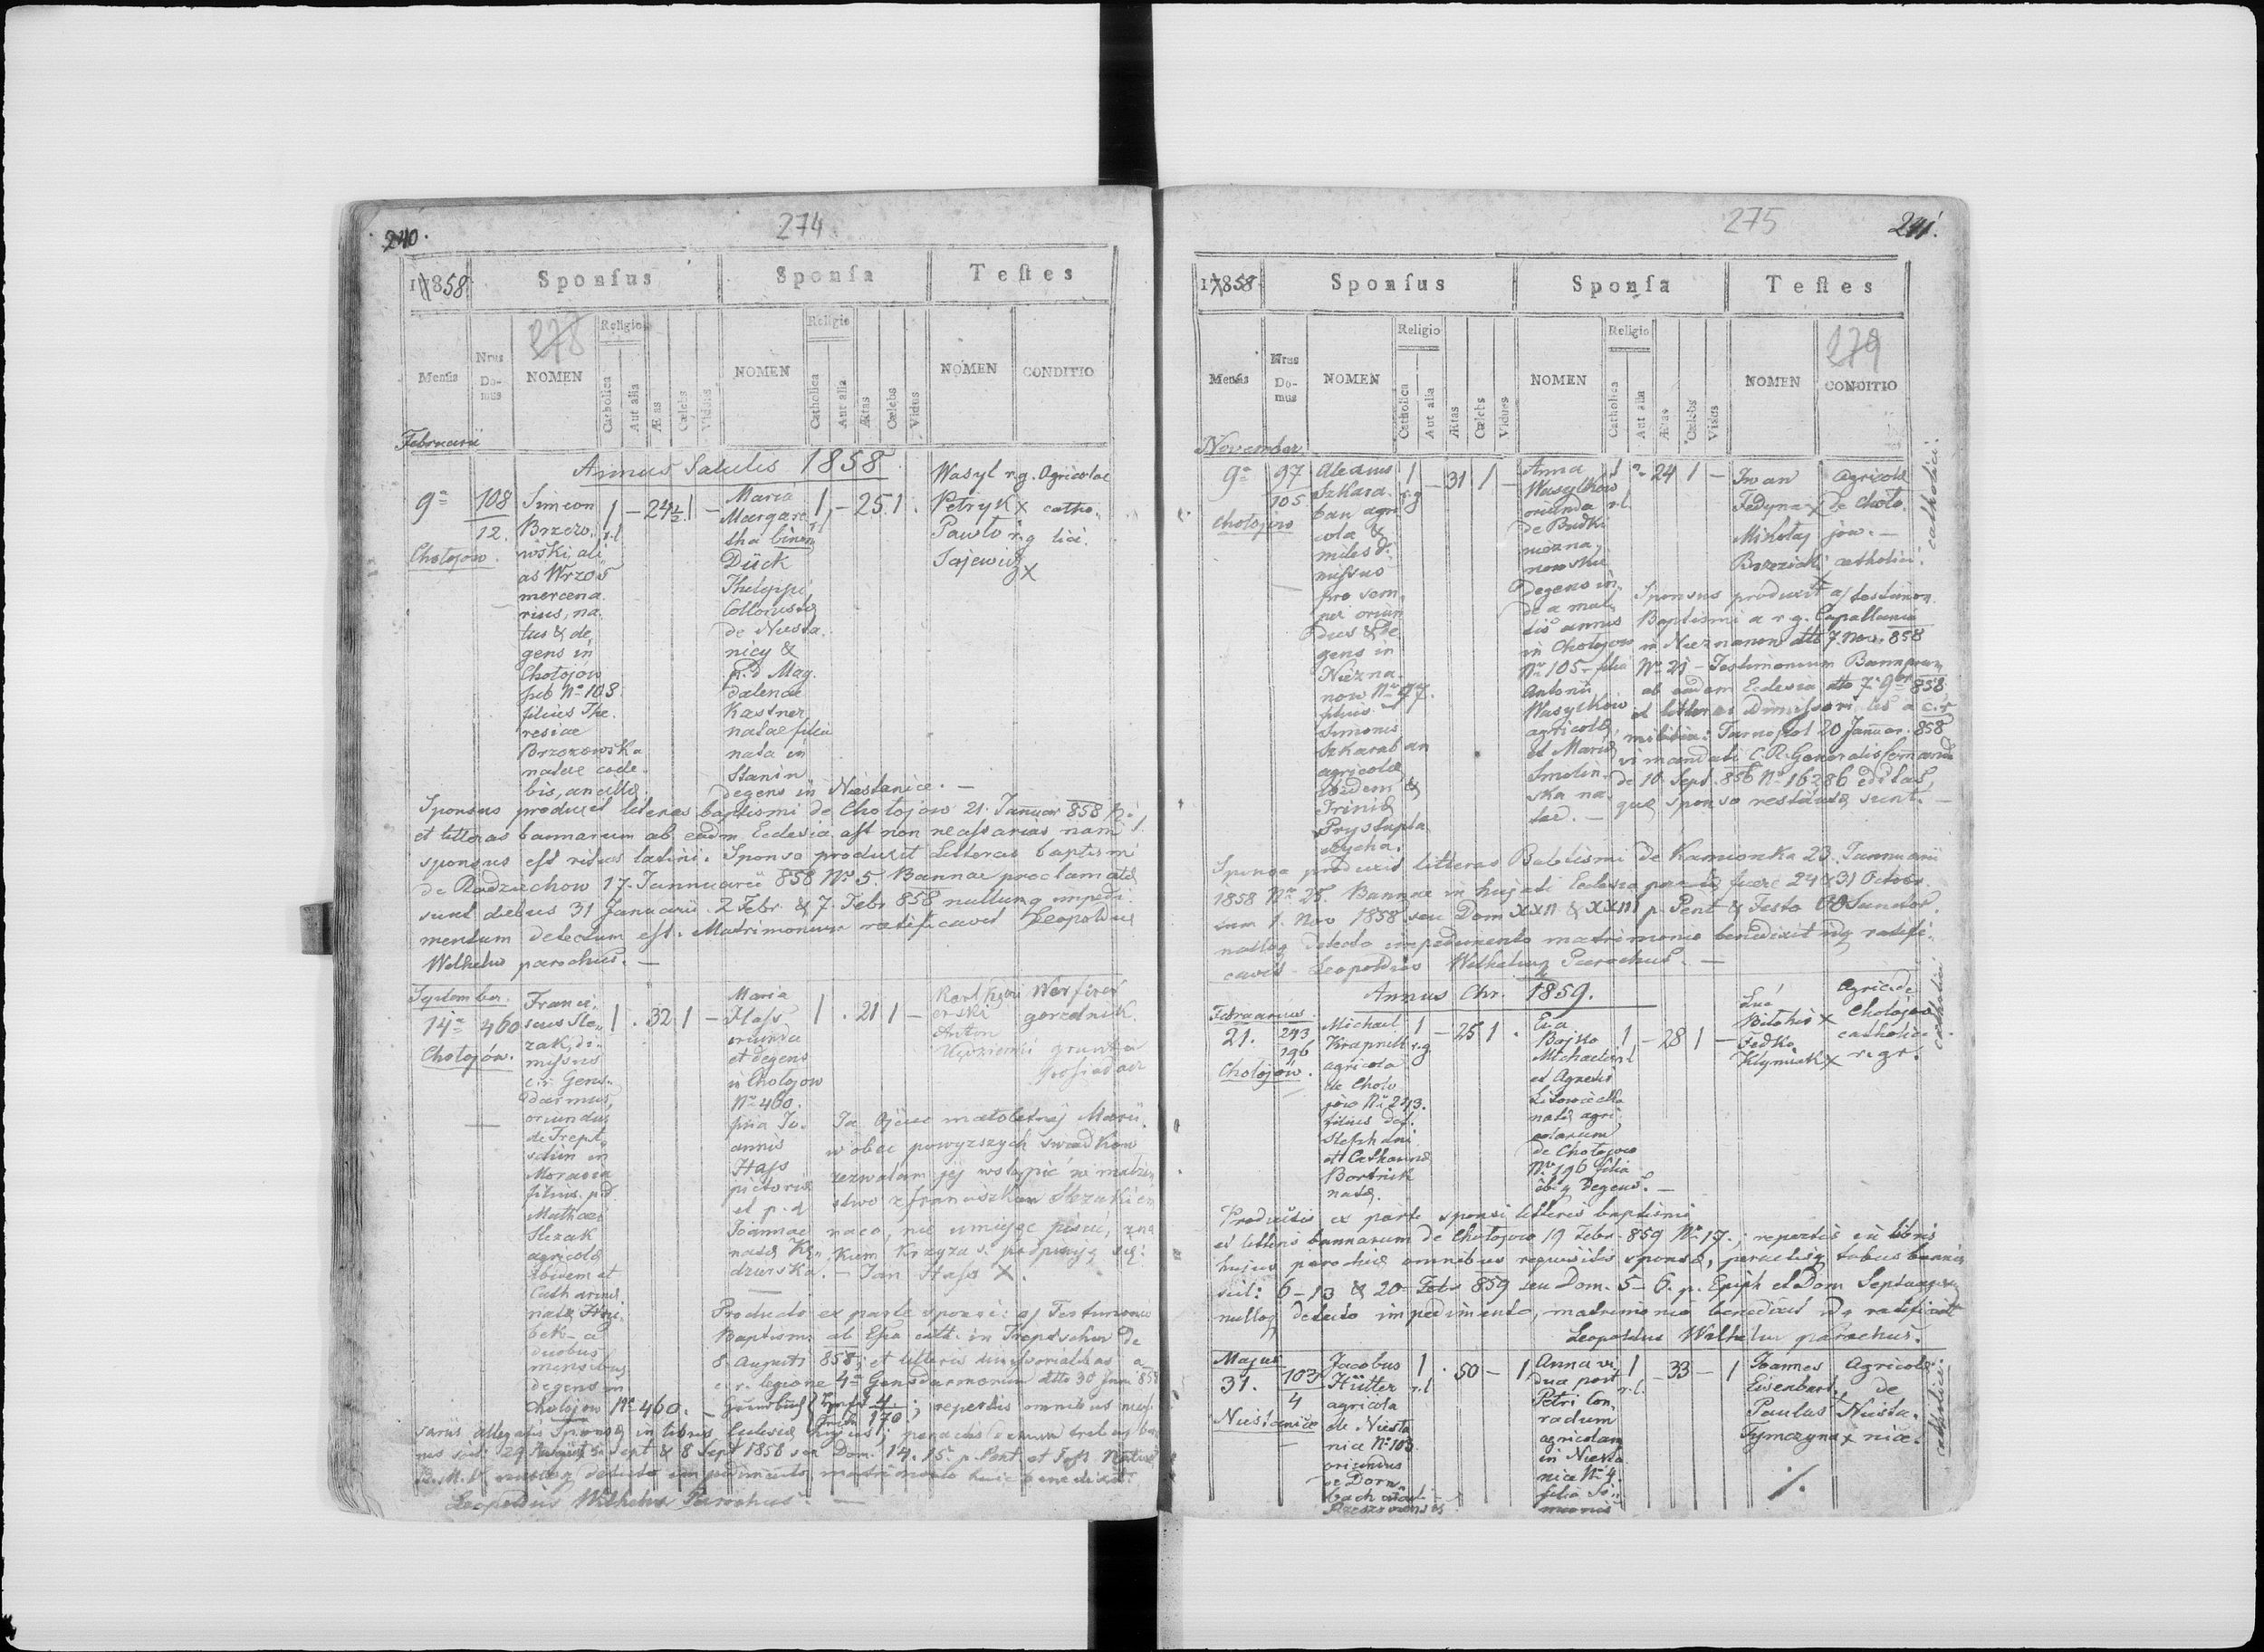 240.
274
11858
Sponsus
Sponsa
Testes
278
Mensis
Nrus Domus
NOMEN
Religio
Catholica
Aut alia
Ætas
Cœlebs
Viduus
NOMEN
Religio
Catholica
Aut alia
Ætas
Cœlebs
Vidus
NOMEN
CONDITIO
Februarii
Annus Salutis 1858
9na
108
12.
Chołojow.
Simeon
Brzezo,
wski, ali
as Wrzos
mercena.
rius, na.
tus & de,
gens in
Chołojów
sub No 108.
filius The.
resiae
Brzozowska
natae coele.
bis, ancillae.
1 r.l
- 24½
1 -
Maria
Margare,
tha binom
Dück
Philippi
Collonistae
de Niesta.
nicy &
p.d Mag.
dalenae
Kastner
natae filia
nata in
Stanin
degens in Niestanice. -
1 r.l
- 25 1.
Wasyl r.g. Agricolae
Petryk x catho,
Pawło r.g lici.
Sajewicz x
Sponsus produxit literas baptismi de Chołojow 21. Januar 858
et litteras bannarum ab eadm Ecclesia ast non necessarias nam
sponsus est ritus latini. Sponsa produxit Litteras baptismi
de Radziechow 17. Jannuarii 858 No 5. Bannae proclamatae
sunt diebus 31 Januarii. 2 Febr. & 7. Febr 858 nullung impedi.
mentum detectum est. Matrimonium ratificavit Leopoldus
Wilhelm parochus. -
September.
14a
460
Chołojów.
Franci.
scus Sle,
zak, di-
missus
c.r. Gens.
darmus,
oriundus
de Trept,
schin in
Moravia
filius p.d
Mathaei
Slezak
agricolae
ibidem et
Catharinae
natae Hri
bek - a
duobus
mensibus
degens in
Chołojow No 460. -
1 . 32 1 -
Maria
Hass
oriunda
et degens
in Chołojow
No 460.
filia Jo.
annis
Hass
pictoris
et p.d
Joannae
natae Kę.
dzierska. -
1 . 21 1 -
Anton
gruntu
Ja Ojciec małoletnej Marii.
w obec powyzszych swiadków
zezwalam jéj wstąpić w małżeń
stwo z franciszkiem Slezakiem
naco, nie umiejąc pisać, zna
kiem Krzyza S. podpisuję się:
Jan Hass X.
Producto ex parte sponsi: a) Testimonio
Baptismi ab Eccla cath. in Treptschin de
8. Augusti 858; et litteris dimissorialibus a
c. r. legione 4a Gensdarmorum dtto 30 Juni 858
170; repertis omnibus neces
sariis allegatis Sponsae in libris Ecclesiae hujus; peractis demum tribusq ban
nis scil: 29 August 5 Sept & 8 Sept 1858 seu Dom. 14. 15. p. Pent. et Festo Nativit
B.M.V. nullog detecto impedimento matrimonio huic benedixit
Leopoldus Wilhelm Parochus. -
275
241.
17858.
Sponsus
Sponsa
Testes
279
Mensis
Nrus Domus
NOMEN
Religio
Catholica
Aut alia
Ætas
Cœlebs
Viduus
NOMEN
Religio
Catholica
Aut alia
Ætas
Cœlebs
Vidus
NOMEN
CONDITIO
November
9a
97
105.
Chołojow
Alexius
Szkara.
ban agri
cola &
miles di
missus
pro sem,
per oriun
dus & de
gens in
Niezna.
now No 97.
filius
Simonis
Szkaraban
agricolae
ibidem &
Irinae
Prystupla
1 r.g
- 31 1 -
Anna
Wasylków
oriunda
de Budki
niezna,
nowskie
degens in
de a mul,
tis annis
in Chołojow
No 105 - filia
Antonii
Wasylków
agricolae
et Mariae
Smolin,
ska na
tae. -
1 r.l
24 1 -
Iwan Agricolae
Fedyna x de Choło.
Mikołaj jow. -
Brzeziak catholici.
x
catholici.
Sponsus produxit a) testimon
Baptismi a r.g. Capellania
in Nieznanow dtto 7. Nov. 858
No 21 - Testimonium Bannarum
ab eadem Ecclesia dto 7. 9br 858
et litteras Dimissoriales a c.r.
militia: Tarnopol 20 Januar. 858
vi mandati C.R. Generalis
de 10 Sept. 856 No 16286 editas,
quae sponso restitutae sunt. -
Sponsa produxit litteras Baptismi de Kamionka 23. Jannuarii
1858 No 25. Bannae in hujati Ecclesia fuere 24 & 31 Octobr.
tum 1. Nov 1858. seu Dom XXII. & XXIII p. Pent & Festo OO Sanctor.
nullog detecto impedimento matrimonio benedixit idq ratifi.
cavit - Leopoldus Wilhelm Parochus. -
Annus Chr. 1859.
Februarius.
21.
243
196
Chołojow.
Michael
Krapnik
agricola
de Choło
jow No 243.
filius def.
Stephani
et Catharinae
Bortnik
natae.
1 r.g
- 25 1 .
Eva
Bojko
Michaelis
et Agnetis
natae agri
colarum
de Chołojow
No 196 filia
ibiq degens. -
1 r.l
- 28 1 -
Agric. de
x Chołojow
Fedko catholici
Klymiuk x r. gr.
catholici
Productis ex parte sponsi litteris baptismi
et litteris bannarum de Chołojow 19 Febr. 859 No 17.; repertis in libris
hujus parochiae omnibus requisitis sponsae, peractisq tribus bannis
scil: 6 - 13 & 20 - Febr 859 seu Dom. 5 - 6. p. Epiph et Dom Septuages
nullog detecto impedimento, matrimonio benedixit idq ratificavit
Leopoldus Wilhelm parochus.
Majus
31.
103
4
Niestanice
-
Jacobus
Hütter
agricola
de Niesta
nice No 103
oriundus
de Dorn,
bach
Rzeszoviensis
1 r.l
. 50 - 1
Anna vi,
dua post
Petri Con,
radum
agricolam
in Niesta
nice No 4.
filia
1 r.l.
- 33 - 1
Joannes Agricolae
Eisenbart, de
Paulus Niesta.
Tymczyna x nice.
catholici.
./.